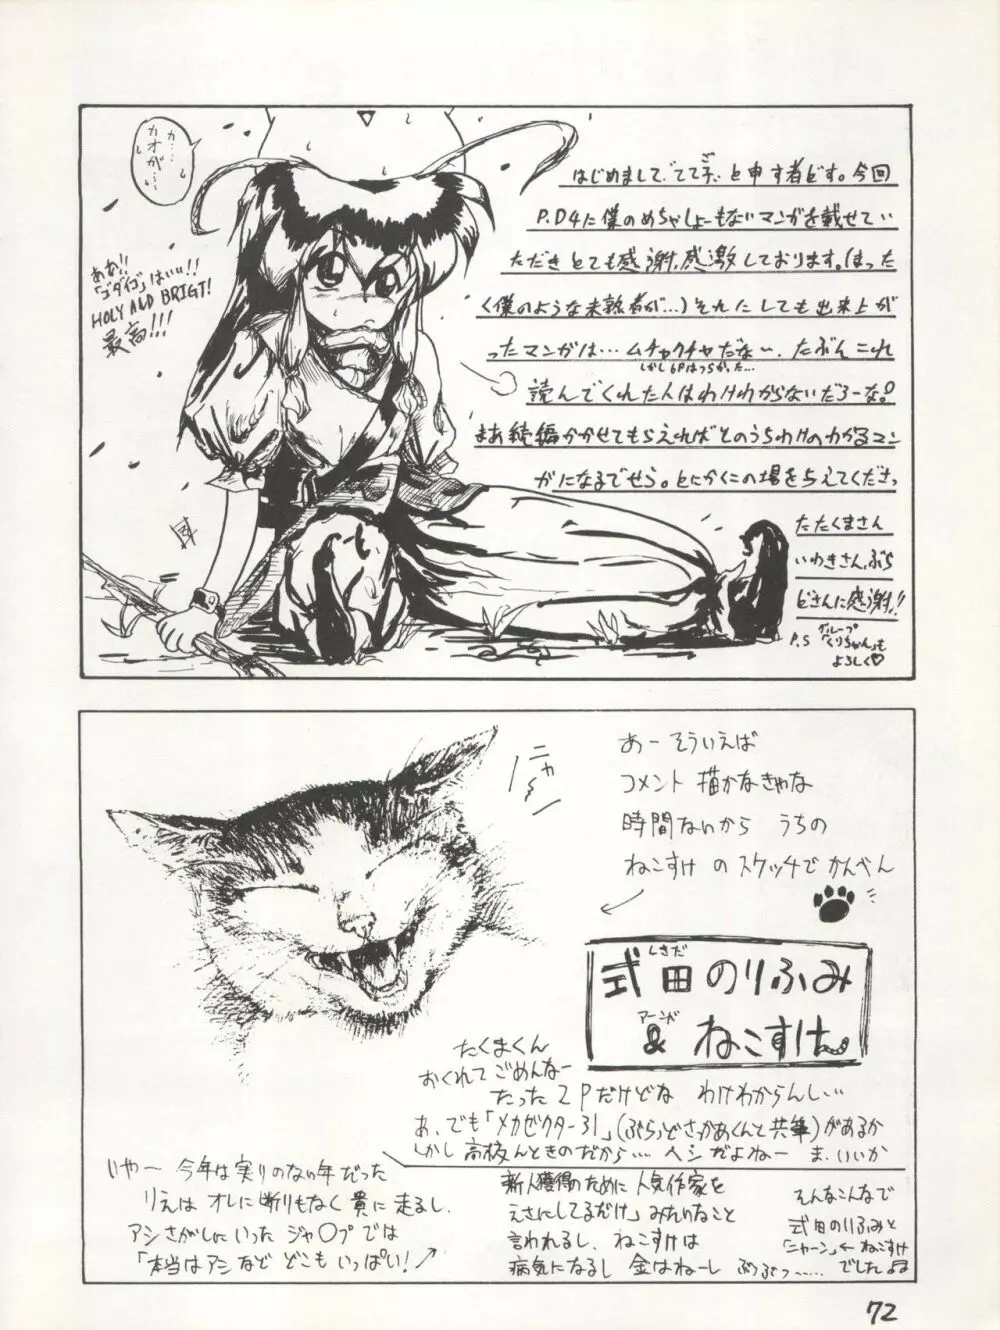 カ……
カオが……
ああ!!
「ゴダイゴ」はいい!!
HOLY AND BRIGT!
最高!!!
はじめまして、"てて子"と申す者どす。今回
P.D4に僕のめちゃしょーもないマンガを載せてい
ただき とても感謝、感激しております。(まった
く僕のような未熟者が…)それにしても出来上が
ったマンガは… ムチャクチャだな〜、たぶんこれ
しかし6Pはつらかった…
読んでくれた人はわけわからないだろーな。
まあ続編かかせてもらえればそのうちわけのわかるマン
ガになるでせう。とにかくこの場を与えてくださっ
たたくまさん
いわきさん、ぶら
どさんに感謝!!
P.S グループ「くりちゃん」も
よろしく♡
ニャ〜ン
あー そういえば
コメント 描かなきゃな
時間ないから うちの
ねこすけ の スケッチで かんべん
しきだ
式田のりふみ
アーンド
& ねこすけ
たくまくん
おくれて ごめんなー
たった 2Pだけどな わけわからんし…
あ、でも「メカゼクター31」(ぶらどさかあくんと共筆)があるか
しかし 高校んときのだから… ヘシだよねー ま、いいか
いやー 今年は実りのない年だった
りえは オレに断りもなく 貴に 走るし、
アシさがしにいった ジャ〇プ では
「本当はアシなど どこも いっぱい!
新人獲得のために 人気作家を
えさにしてるだけ」みたいなこと
言われるし、ねこすけは
病気になるし 金はねーし ぶつぶつ〜……
そんなこんなで
式田のりふみと
「ニャーン」← ねこすけ
でした♫
72